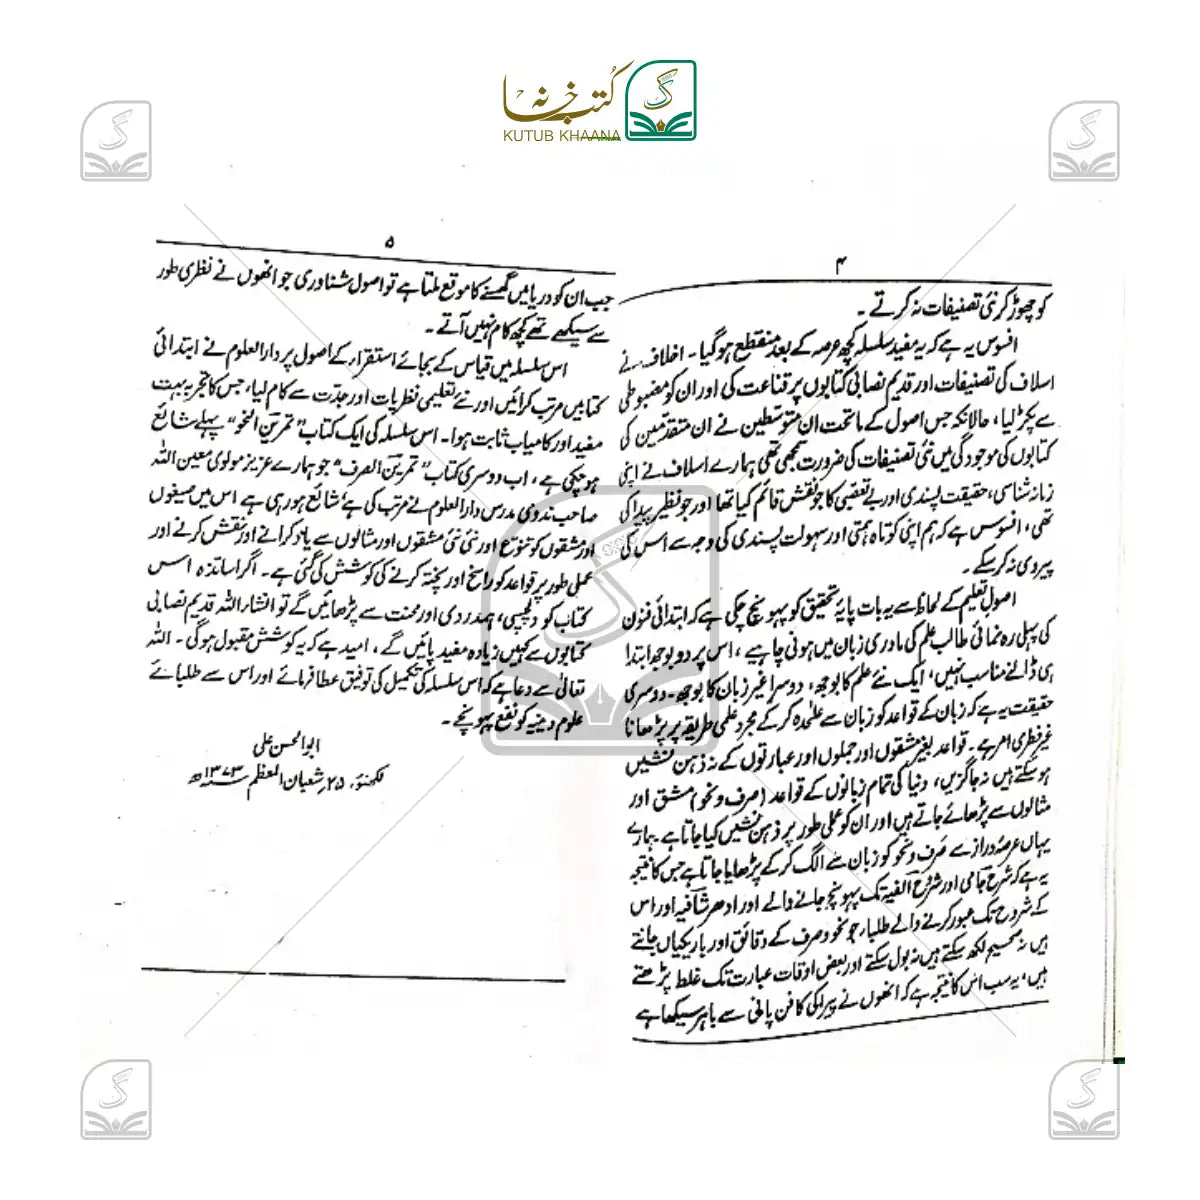 کتب خانہ
KUTUB KHAANA
۴
کو چھوڑ کر نئی تصنیفات نہ کرتے ۔
افسوس یہ ہے کہ یہ مفید سلسلہ کچھ عرصہ کے بعد منقطع ہوگیا ۔ اخلاف نے
اسلاف کی تصنیفات اور قدیم نصابی کتابوں پر قناعت کی اور ان کو مضبوطی
سے پکڑ لیا ، حالانکہ جس اصول کے ماتحت ان متوسطین نے ان متقدمین کی
کتابوں کی موجودگی میں نئی تصنیفات کی ضرورت سمجھی تھی ہمارے اسلاف نے اپنی
زمانہ شناسی ، حقیقت پسندی اور بے تعصبی کا جو نقش قائم کیا تھا اور جو نظیر پیدا کی
تھی ، افسوس ہے کہ ہم اپنی کوتاہ ہمتی اور سہولت پسندی کی وجہ سے اس کی
پیروی نہ کر سکے ۔
اصول تعلیم کے لحاظ سے یہ بات پایۂ تحقیق کو پہونچ چکی ہے کہ ابتدائی فنون
کی پہلی رہ نمائی طالب علم کی مادری زبان میں ہونی چاہیے ، اس پر دو بوجھ ابتدا
ہی ڈالنے مناسب نہیں ، ایک نئے علم کا بوجھ ، دوسرا غیر زبان کا بوجھ ۔ دوسری
حقیقت یہ ہے کہ زبان کے قواعد کو زبان سے علٰحدہ کرکے مجرد علمی طریقہ پر پڑھانا
غیر فطری امر ہے ۔ قواعد بغیر مشقوں اور جملوں اور عبارتوں کے نہ ذہن نشیں
ہو سکتے ہیں نہ جاگزیں ، دنیا کی تمام زبانوں کے قواعد (صرف و نحو) مشق اور
مثالوں سے پڑھائے جاتے ہیں اور ان کو عملی طور پر ذہن نشیں کیا جاتا ہے ہمارے
یہاں عرصۂ دراز سے صرف و نحو کو زبان سے الگ کرکے پڑھایا جاتا ہے جس کا نتیجہ
یہ ہے کہ شرح جامی اور شروح الفیہ تک پہونچ جانے والے اور ادھر شافیہ اور اس
کے شروح تک عبور کرنے والے طلباء جو نحو و صرف کے دقائق اور باریکیاں جانتے
ہیں نہ صحیح لکھ سکتے ہیں نہ بول سکتے اور بعض اوقات عبارت تک غلط پڑھتے
ہیں ، یہ سب اس کا نتیجہ ہے کہ انھوں نے پیراکی کا فن پانی سے باہر سیکھا ہے
۵
جب ان کو دریا میں گھسنے کا موقع ملتا ہے تو اصول شناوری جو انھوں نے نظری طور
سے سیکھے تھے کچھ کام نہیں آتے ۔
اس سلسلہ میں قیاس کے بجائے استقرار کے اصول پر دارالعلوم نے ابتدائی
کتابیں مرتب کرائیں اور نئے تعلیمی نظریات اور جدت سے کام لیا ، جس کا تجربہ بہت
مفید اور کامیاب ثابت ہوا ۔ اس سلسلہ کی ایک کتاب "تمرین النحو" پہلے شائع
ہوچکی ہے ، اب دوسری کتاب "تمرین الصرف" جو ہمارے عزیز مولوی معین اللہ
صاحب ندوی مدرس دارالعلوم نے مرتب کی ہے شائع ہورہی ہے اس میں صیغوں
اور مشقوں کو تنوع اور نئی نئی مشقوں اور مثالوں سے یاد کرانے اور نقش کرنے اور
عملی طور پر قواعد کو راسخ اور پختہ کرنے کی کوشش کی گئی ہے ۔ اگر اساتذہ اس
کتاب کو دلچسپی ، ہمدردی اور محنت سے پڑھائیں گے تو انشاء اللہ قدیم نصابی
کتابوں سے کہیں زیادہ مفید پائیں گے ، امید ہے کہ یہ کوشش مقبول ہوگی ۔ اللہ
تعالٰی سے دعا ہے کہ اس سلسلہ کی تکمیل کی توفیق عطا فرمائے اور اس سے طلبائے
علوم دینیہ کو نفع پہونچے ۔
ابوالحسن علی
لکھنؤ ، ۲۵ر شعبان المعظم سنہ ۱۳۷۳ھ